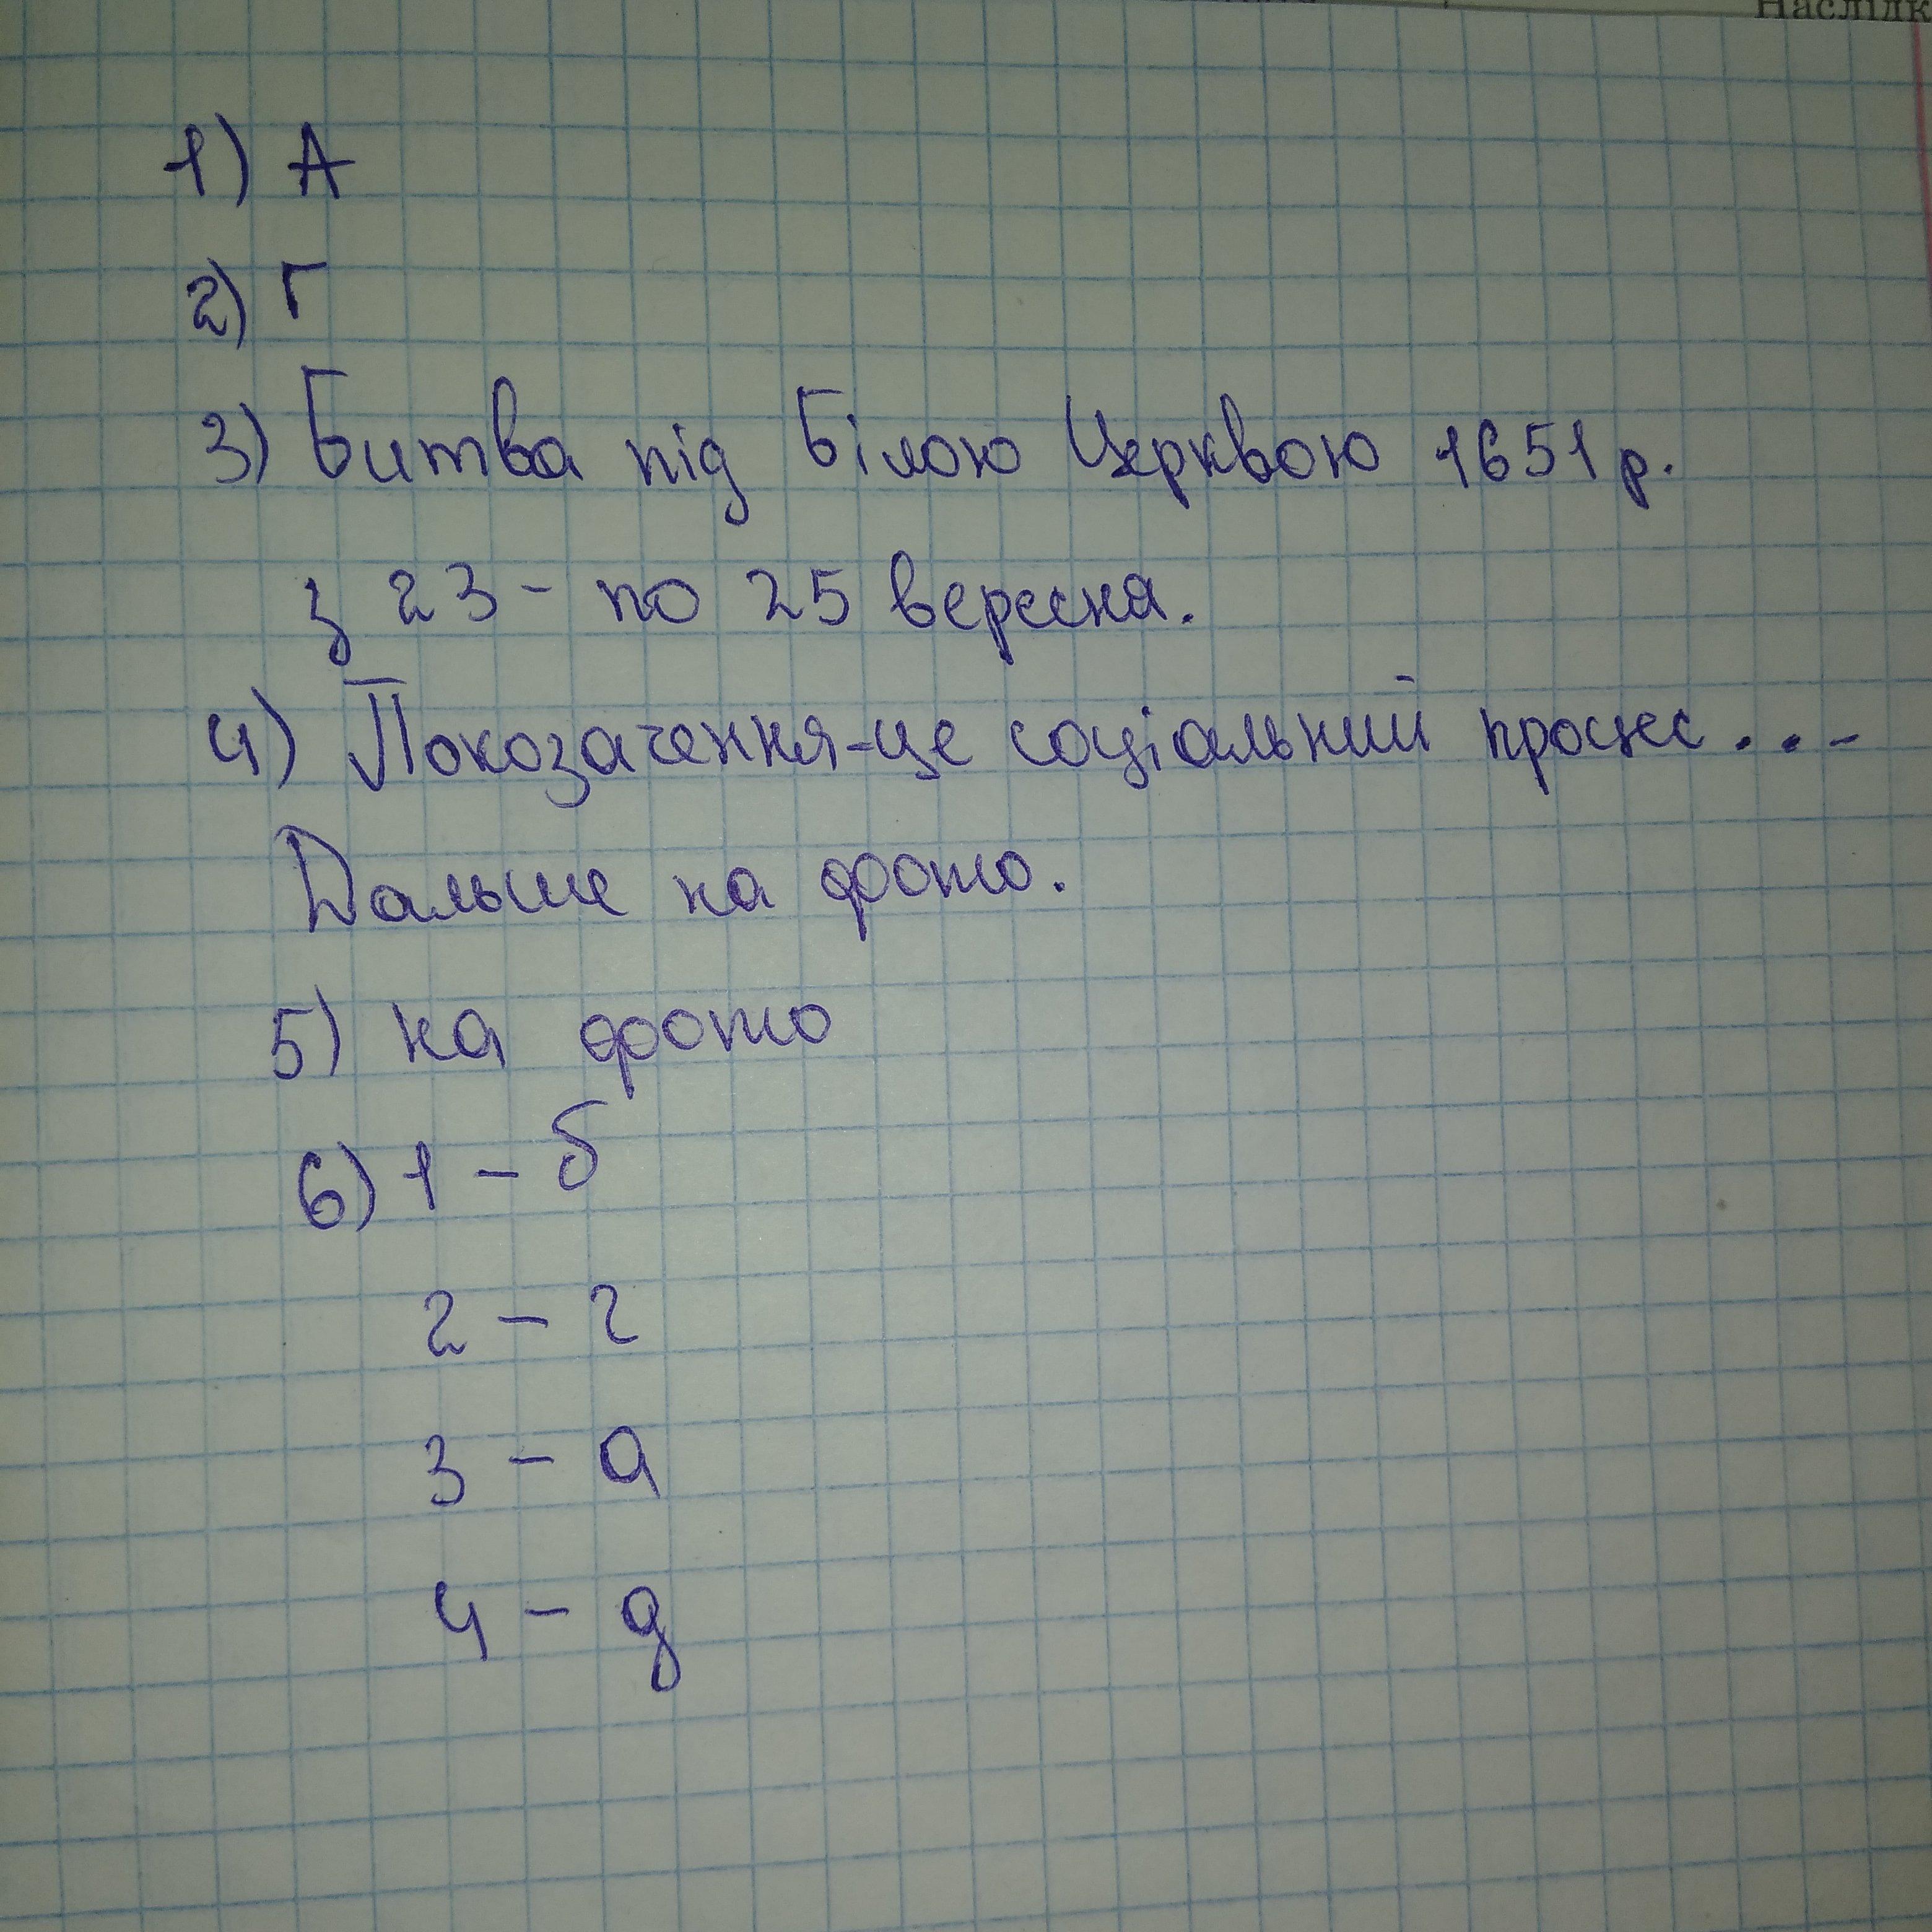 Наслідк
1) А
2) Г
3) Битва під Білою Церквою 1651 р.
з 23 - по 25 вересня.
4) Покозачення-це соціальний процес...-
Дальше на фото.
5) на фото
6) 1 - б
2 - г
3 - а
4 - д